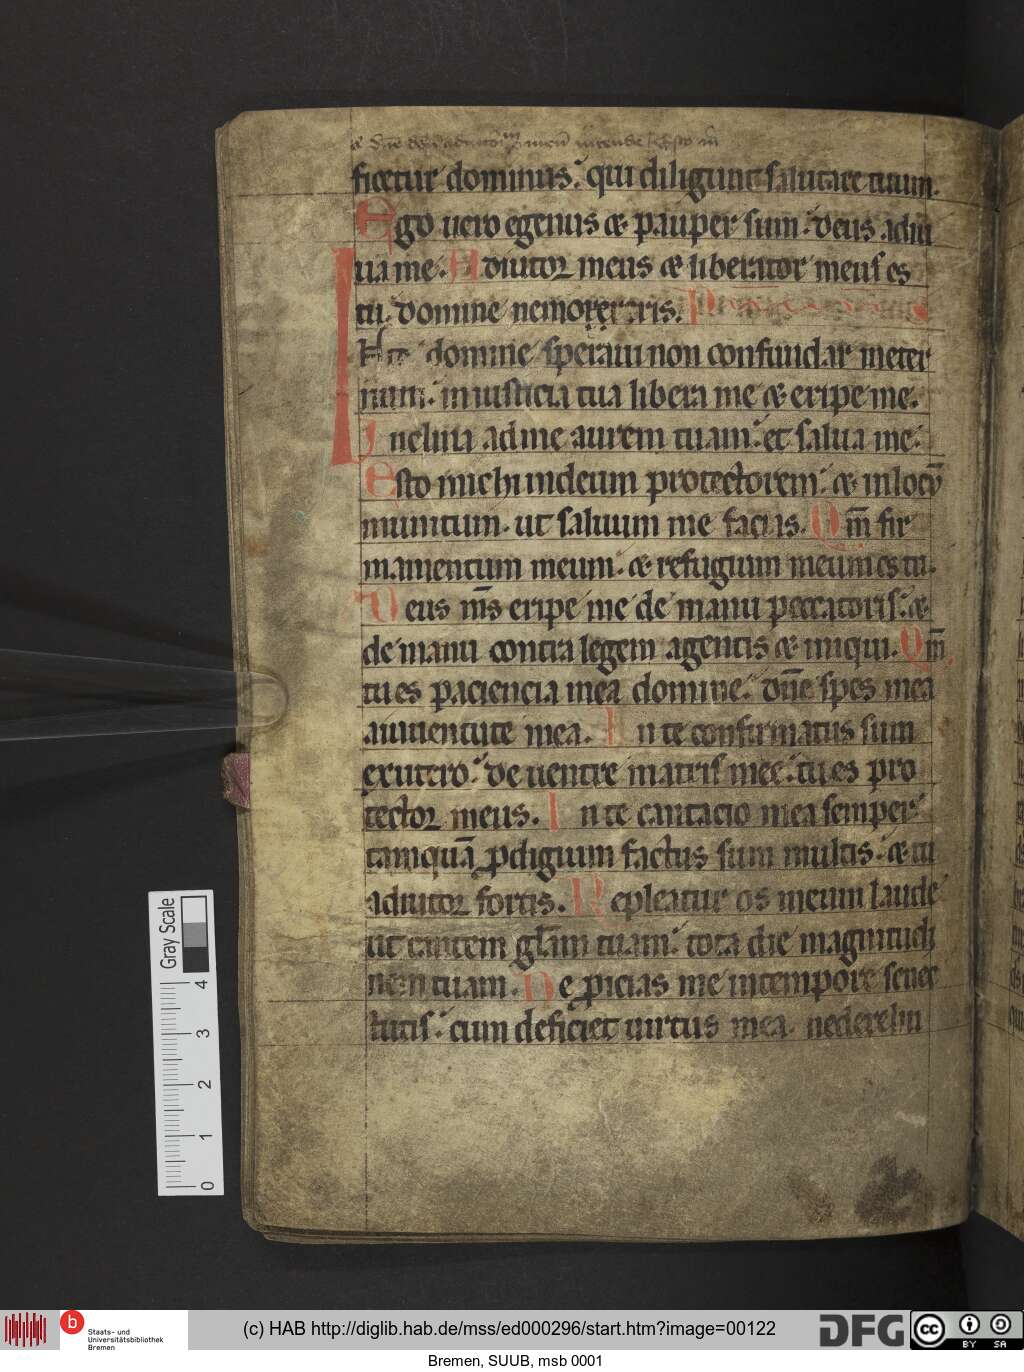 ficetur dominus. qui diligunt salutare tuum.
Ego uero egenus & pauper sum. deus adiu
ua me. Adiutor meus & liberator meus es
tu. domine nemoreris.
In te domine speraui non confundar ineter
num. iniusticia tua libera me & eripe me.
Inclina ad me aurem tuam. et salua me.
Esto michi indeum protectorem. & inlocū
munitum. ut saluum me facias. Qm̄ fir
mamentum meum. & refugium meum es tu.
Deus m̄s eripe me de manu peccatoris. &
de manu contra legem agentis & iniqui. Qm̄
tu es paciencia mea domine. dn̄e spes mea
aiuuentute mea. In te confirmatus sum
exutero. de uentre matris mee. tu es pro
tector meus. In te cantacio mea semper
tamquā prodigium factus sum multis. & tu
adiutor fortis. Repleatur os meum laude
ut cantem gl̄am tuam. tota die magnitudi
nem tuam. Ne proicias me intempore senec
tutis. cum defecerit uirtus mea. nederelin
Gray Scale
4
3
2
1
0
b
Staats- und
Universitätsbibliothek
Bremen
(c) HAB http://diglib.hab.de/mss/ed000296/start.htm?image=00122
DFG
cc BY SA
Bremen, SUUB, msb 0001